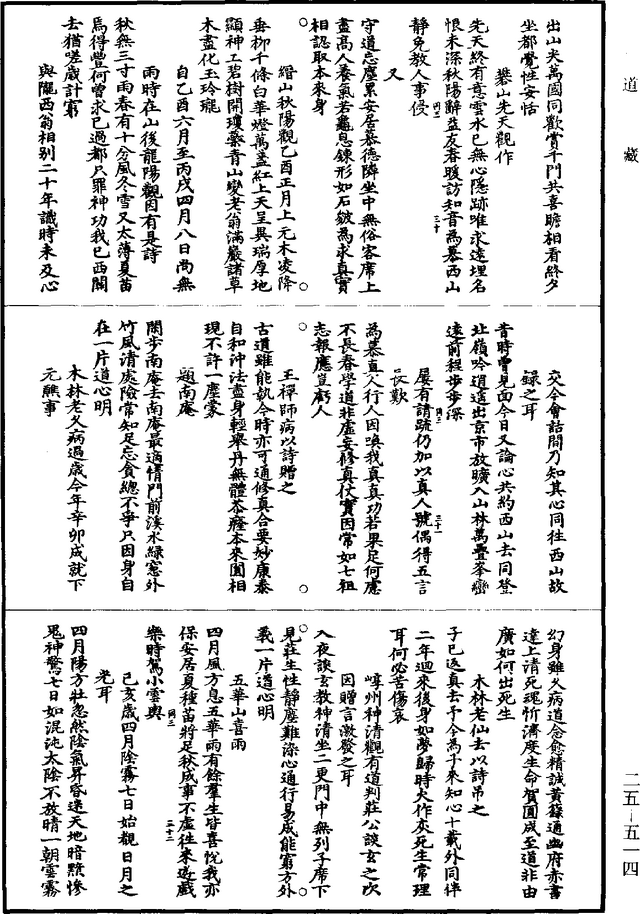 道藏
出山尖萬國同歡賞千門共喜瞻相看終夕
坐都覺性安恬
　　磻山先天觀作
先天終有意雲水已無心隱跡唯求達埋名
恨未深秋陽辭益友春暖訪知音為慕西山
靜免教人事侵
　　又
守道忘塵累安居慕德隣坐中無俗客席上
盡高人養氣若龜息鍊形如石皴為求真實
相認取本來身
　　縉山秋陽觀乙酉正月上元木凌降
垂柳千條白華燈萬盞紅上天呈異瑞厚地
顯神工碧樹開瓊蘂青山變老翁滿巖諸草
木盡化玉玲瓏
　　自乙酉六月至丙戌四月八日尚無
　　雨時在山後龍陽觀因有是詩
秋無三寸雨春有十分風冬雪又太薄夏苗
焉得豐何曾求己過都只罪神功我已西關
去猶嗟歲計窮
　　與隴西翁相别二十年識時未及心
　　交今會詰問乃知其心同往西山故
　　録之耳
昔時曾見面今日又論心共約西山去同登
北嶺吟逍遥出京市放曠入山林萬疊峯巒
遠前程步步深
　　屢有請疏仍加以真人號偶得五言
　　長歎
為慕真人行人因喚我真真功若果足何慮
不長春學道非虛妄修真仗實因常如七祖
志報應豈虧人
　　王禪師病以詩贈之
古道雖能執今時亦可通修真合要妙康泰
自和沖法盡身輕舉丹無體恭癃本來圓相
現不許一塵蒙
　　題南庵
閑步南庵去南庵最適情門前溪水緑窻外
竹風清處險常知足忘貪總不爭只因身自
在一片道心明
　　木林老久病過歲今年辛卯成就下
　　元醮事
幻身雖久病道念愈精誠黄籙通幽府赤書
達上清死魂忻濟度生命賀圓成至道非由
廣如何出死生
　　木林老仙去以詩吊之
子已返真去予今為子來知心十載外同伴
二年迴來後身如夢歸時火作灰死生常理
耳何必苦傷哀
　　崞州神清觀有道判莊公談玄之次
　　因贈言激發之耳
入夜談玄教神清坐二更門中無列子席下
見莊生性靜塵難染心通行易成能窮方外
義一片道心明
　　五華山喜雨
四月風方息五華雨有餘羣生皆喜悦我亦
保安居夏種苗將足秋成事不虛往來遊戲
樂時駕小雲輿
　　己亥歲四月陰霧七日始觀日月之
　　光耳
四月陽方壯忽然陰氣昇昏迷天地暗黯慘
鬼神驚七日如混沌太陰不放晴一朝雲霧
二五―五一四